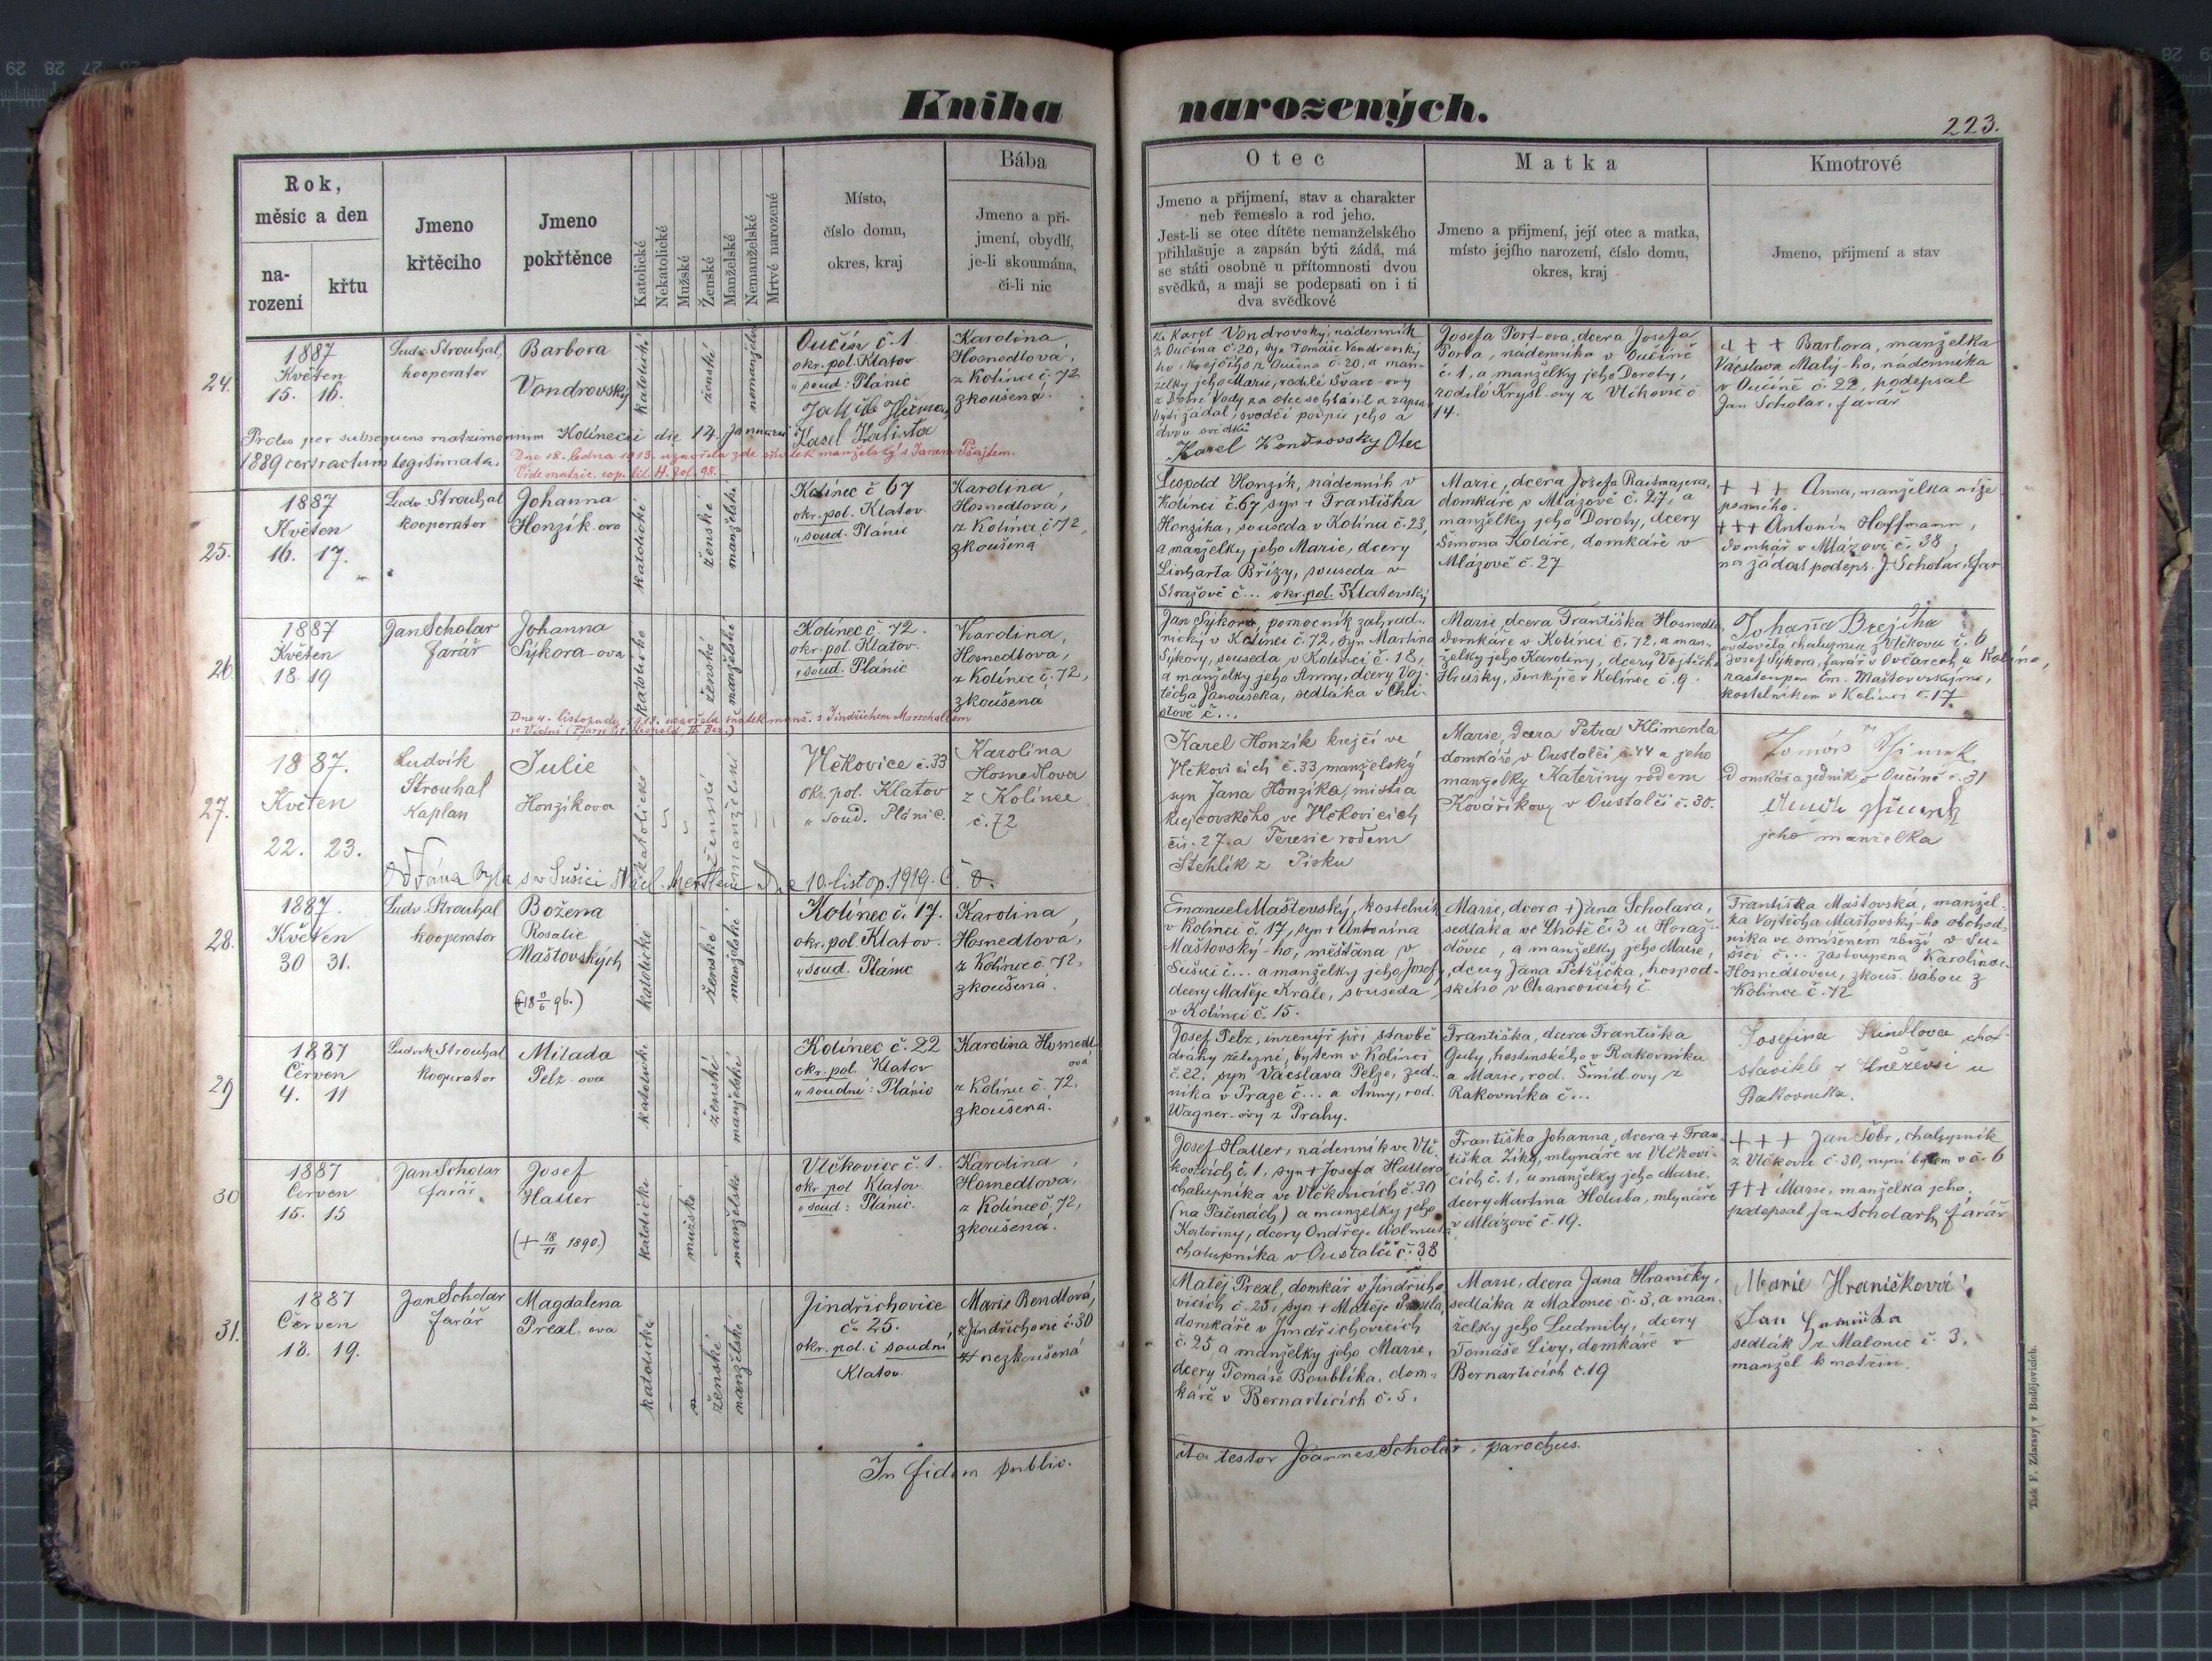 Kniha
narozených.
223.
Rok,
měsíc a den
na-
rození
křtu
Jmeno
křtěcího
Jmeno
pokřtěnce
Katolické
Nekatolické
Mužské
Ženské
Manželské
Nemanželské
Mrtvé narozené
Místo,
číslo domu,
okres, kraj
Bába
Jmeno a pří-
jmení, obydlí,
je-li skoumána,
či-li nic
Otec
Jmeno a přijmení, stav a charakter
neb řemeslo a rod jeho.
Jest-li se otec dítěte nemanželského
přihlašuje a zapsán býti žádá, má
se státi osobně u přítomnosti dvou
svědků, a mají se podepsati on i ti
dva svědkové
Matka
Jmeno a přijmení, její otec a matka,
místo jejího narození, číslo domu,
okres, kraj
Kmotrové
Jmeno, přijmení a stav
24.
1887
Květen
15. 16.
Ludv. Strouhal,
kooperator
Barbora
Vondrovský
katolické
ženské
nemanželské
Oučín č. 1
okr. pol. Klatov
" soud: Plánic
Karel Kalista
Karolina,
Hosnedlová,
z Kolince č. 72
zkoušená.
Proles per subsequens matrimonium Kolinecii die 14. Januarii
1889 contractum legitimata.
Dne 18. ledna 1913. uzavřela zde sňatek manželský s Janem
Vide matric. cop. lit. H. fol. 98.
Karel Vondrovský, nádenník
z Oučína č. 20, syn Tomáše Vondrovský
ho, krejčího z Oučína č. 20, a man-
želky jeho Marie, rodilé Švarc-ovy
z Dobré Vody za otce se hlásil a zapsán
býti žádal, svědčí podpis jeho a
dvou svědků
Karel Vondrovsky Otec
Josefa Port-ova, dcera Josefa
Porta, nádenníka v Oučíně
č. 1, a manželky jeho Doroty,
rodilé Krysl-ovy z Vlčkovic č.
14.
+ + + Barbora, manželka
Václava Malý-ho, nádenníka
v Oučíně č. 22, podepsal
Jan Scholar, farář
25.
1887
Květen
16. 17.
Ludv. Strouhal
kooperator
Johanna
Honzík-ova
katolické
ženské
manželské
Kolinec č 67
okr. pol. Klatov.
" soud. Plánic
Karolina
Hosnedlová,
z Kolince č. 72,
zkoušená
Leopold Honzík, nádenník v
Kolinci č. 67, syn + Františka
Honzíka, souseda v Kolinci č. 23,
a manželky jeho Marie, dcery
Linharta Břízy, souseda v
Strážově č... okr. pol. Klatovský
Marie, dcera Josefa Raitmajera,
domkáře v Mlázově č. 27, a
manželky jeho Doroty, dcery
Šimona Koláře, domkáře v
Mlázově č. 27
+ + + Anna, manželka níže
psaného.
+++ Antonín Hoffmann,
domkář v Mlázově č. 38,
na žádost podeps. J. Scholar, far
26.
1887
Květen
18 19
Jan Scholar
farář
Johanna
Sýkora-ova
katolické
ženské
manželské
Kolinec č. 72.
okr. pol. Klatov.
" soud. Plánic
Karolina,
Hosnedlová,
z Kolince č. 72,
zkoušená
Dne 4. listopadu 1913. uzavřela sňatek manž. s Jindřichem Marschallem
ve Vídni
Jan Sýkora, pomocník zahrad-
nický v Kolinci č. 72, syn Martina
Sýkory, souseda v Kolinci č. 18,
a manželky jeho Anny, dcery Voj-
těcha Janouška, sedláka v Chli-
stově č...
Marie, dcera Františka Hosnedla,
domkáře v Kolinci č. 72, a man-
želky jeho Karoliny, dcery Vojtěcha
Hrušky, šenkýře v Kolinci č. 9.
Johana Brejcha
ovdovělá chalupnice z Vlčkovic č. 6
Josef Sýkora, farář v Ovčárech u Kolína,
zastoupen Em. Maštovským,
kostelníkem v Kolinci č. 17.
27.
1887.
Květen
22. 23.
Ludvík
Strouhal
Kaplan
Julie
Honzíkova
katolické
ženské
manželské
Vlčkovice č. 33
okr. pol. Klatov
" soud. Plánic.
Karolina
Hosnedlova
z Kolince
č. 72
Oddána byla s v Sušici s Václ. Mertlem Dne 10. listop. 1919.
Karel Honzík krejčí ve
Vlčkovicích č. 33, manželský
syn Jana Honzíka, mistra
krejčovského ve Vlčkovicích
čís. 27. a Teresie rodem
Stehlík z Písku
Marie, dcera Petra Klimenta
domkáře, v Oustalči č. 44 a jeho
manželky Kateřiny rodem
Kováříkovy v Oustalči č. 30.
Tomáš Šimek
Domkář a zedník v Oučíně č. 31
jeho manželka
28.
1887.
Květen
30 31.
Ludv. Strouhal
kooperator
Božena
Rosalie
Maštovských
katolické
ženské
manželské
Kolinec č. 17.
okr. pol. Klatov.
" soud. Plánic
Karolina,
Hosnedlová,
z Kolince č. 72,
zkoušená.
Emanuel Maštovský, kostelník
v Kolinci č. 17, syn + Antonína
Maštovský-ho, měšťana v
Sušici č... a manželky jeho Josefy,
dcery Matěje Krále, souseda
v Kolinci č. 15.
Marie, dcera + Jana Scholara,
sedláka ve Lhotě č. 3 u Horaž-
ďovic, a manželky jeho Marie,
dcery Jana Petržíčka, hospod-
ského v Chanovicích č.
Františka Maštovská, manžel-
ka Vojtěcha Maštovský-ho obchod-
níka ve smíšeném zboží v Su-
šici č... zastoupena Karolinou
Hosnedlovou, zkouš. babou z
Kolince č. 72
29
1887
Červen
4. 11
Ludvík Strouhal
kooperator
Milada
Pelz-ova
katolické
ženské
manželské
Kolinec č. 22
okr. pol. Klatov
" soudní: Plánic
Karolina Hosnedl
ová
z Kolince č. 72,
zkoušená.
Josef Pelz, inženýr při stavbě
dráhy železné, bytem v Kolinci
č. 22, syn Václava Pelze, zed-
níka v Praze č... a Anny, rod.
Wagner-ovy z Prahy.
Františka, dcera Františka
Guby, hostinského v Rakovníku
a Marie, rod. Šmíd-ovy z
Rakovníka č...
stavitele z Kněževsi u
Rakovníka.
30
1887
Červen
15. 15
Jan Scholar
farář
Josef
Haller
(+ 18/11 1890.)
katolické
mužské
manželské
Vlčkovice č. 1.
okr. pol Klatov.
" soud: Plánic.
Karolina,
Hosnedlova,
z Kolince č. 72,
zkoušená.
Josef Haller, nádenník ve Vlč-
kovicích č. 1, syn + Josefa Hallera
chalupníka ve Vlčkovicích č. 30
(na Pačinách) a manželky jeho
Kateřiny, dcery Ondřeje Wolmuta
chalupníka v Oustalči č. 38
Františka Johanna, dcera + Fran-
tiška Ziky, mlynáře ve Vlčkovi-
cích č. 1, a manželky jeho Marie,
dcery Martina Holuba, mlynáře
v Mlázově č. 19.
+ + + Jan Šobr, chalupník
z Vlčkovic č. 30, nyní bytem v č. 6
+++ Marie, manželka jeho,
podepsal Jan Scholar, farář
31.
1887
Červen
18. 19.
Jan Scholar
farář
Magdalena
Prexl-ova
katolické
ženské
manželské
Jindřichovice
č. 25.
okr. pol. i soudní
Klatov.
Marie Rendlová,
z Jindřichovic č. 30
nezkoušená
Matěj Prexl, domkář v Jindřicho-
vicích č. 25, syn + Matěje Prexla,
domkáře v Jindřichovicích
č. 25 a manželky jeho Marie,
dcery Tomáše Boublíka, dom-
káře v Bernarticích č. 5.
Marie, dcera Jana Hraničky,
sedláka z Malonic č. 3, a man-
želky jeho Ludmily, dcery
Tomáše Lívy, domkáře v
Bernarticích č. 19
Marie Hraničková
Jan Hranička
sedlák z Malonic č. 3.
manžel kmotřin.
In fidem public.
ita testor Joannes Scholar, parochus.
Tisk F. Zdarssy v Budějovicích.